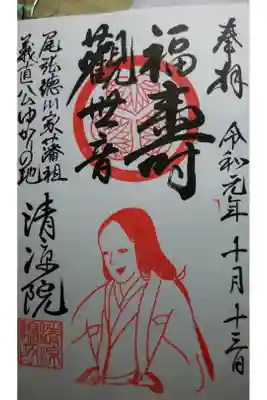 奉拝
令和元年十月十三日
福寿
観世音
尾張徳川家藩祖
義直公ゆかりの地
清涼院